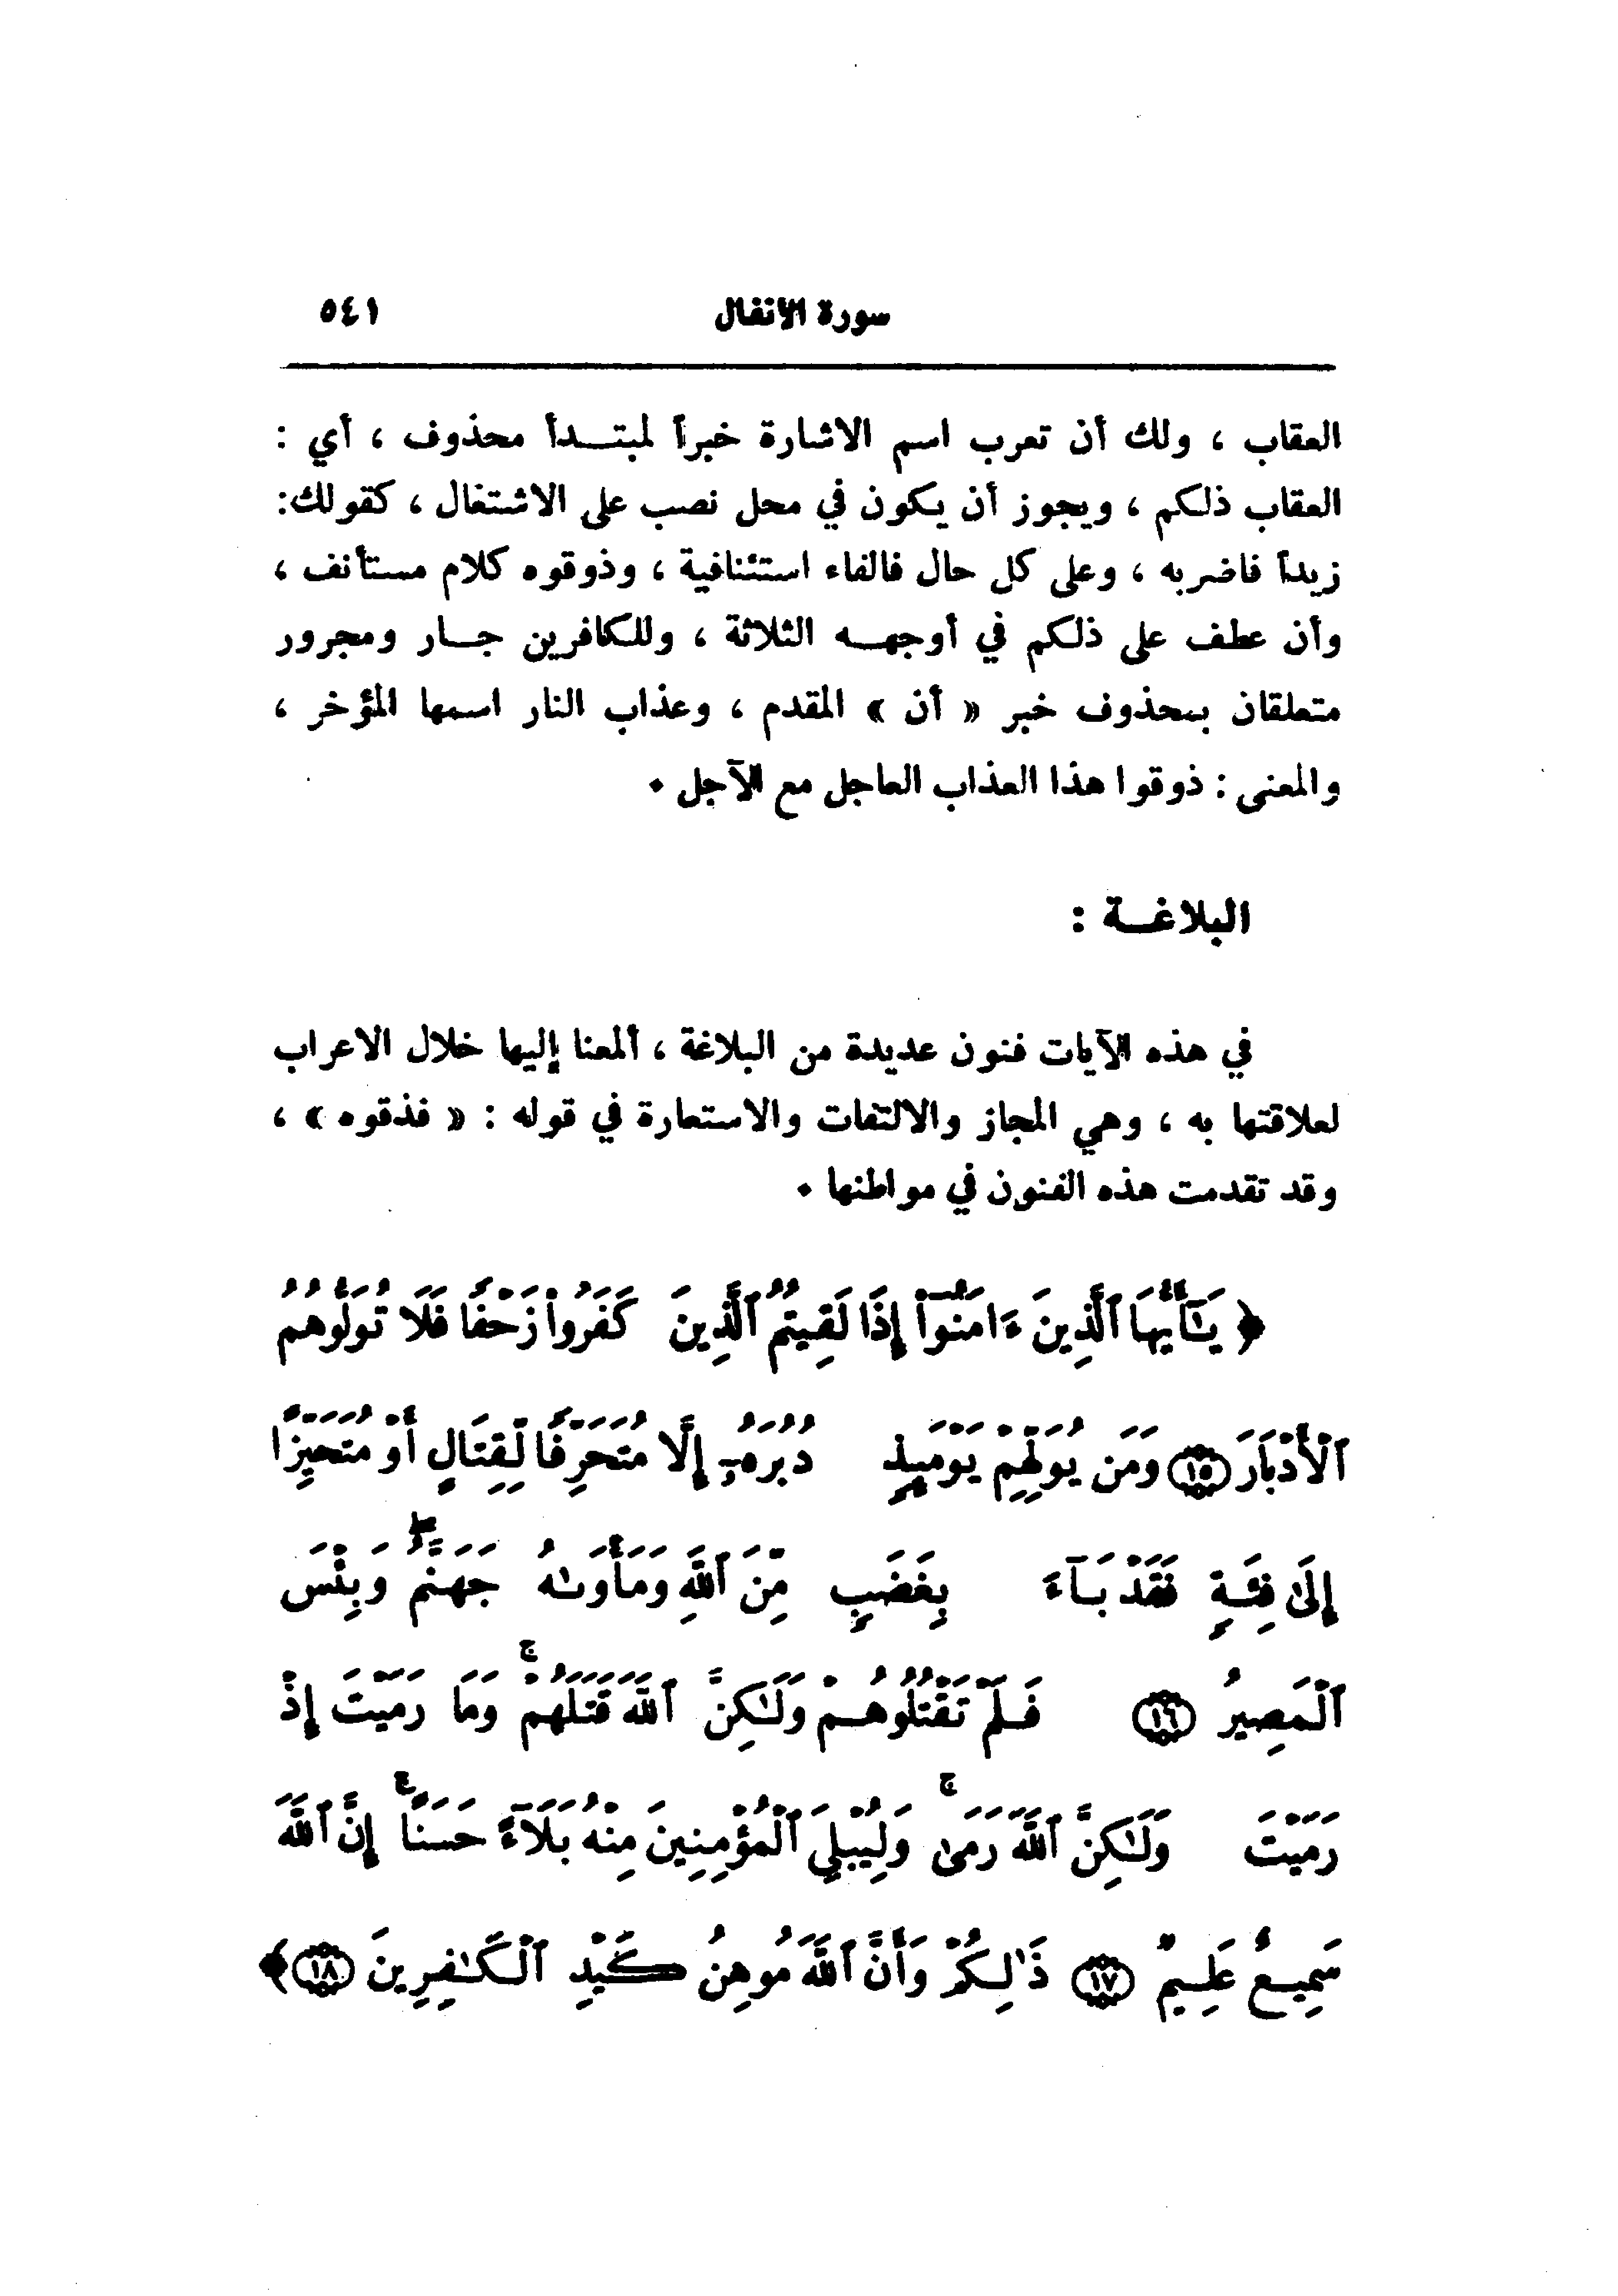 سورة الأنفال ٥٤١
العقاب ، ولك أن تعرب اسم الاشارة خبراً لمبتدأ محذوف ، أي :
العقاب ذلكم ، ويجوز أن يكون في محل نصب على الاشتغال ، كقولك:
زيداً فاضربه ، وعلى كل حال فالفاء استئنافية ، وذوقوه كلام مستأنف ،
وأن عطف على ذلكم في أوجهه الثلاثة ، وللكافرين جار ومجرور
متعلقان بمحذوف خبر « أن » المقدم ، وعذاب النار اسمها المؤخر ،
والمعنى : ذوقوا هذا العذاب العاجل مع الآجل ٠
البلاغة :
في هذه الآيات فنون عديدة من البلاغة ، ألمعنا إليها خلال الاعراب
لعلاقتها به ، وهي المجاز والالتفات والاستعارة في قوله : « فذقوه » ،
وقد تقدمت هذه الفنون في مواطنها ٠
﴿ يَـٰٓأَيُّهَا ٱلَّذِينَ ءَامَنُوٓا۟ إِذَا لَقِيتُمُ ٱلَّذِينَ كَفَرُوا۟ زَحْفًا فَلَا تُوَلُّوهُمُ
ٱلْأَدْبَارَ ١٥ وَمَن يُوَلِّهِمْ يَوْمَئِذٍ دُبُرَهُۥٓ إِلَّا مُتَحَرِّفًا لِّقِتَالٍ أَوْ مُتَحَيِّزًا
إِلَىٰ فِئَةٍ فَقَدْ بَآءَ بِغَضَبٍ مِّنَ ٱللَّهِ وَمَأْوَىٰهُ جَهَنَّمُ ۖ وَبِئْسَ
ٱلْمَصِيرُ ١٦ فَلَمْ تَقْتُلُوهُمْ وَلَـٰكِنَّ ٱللَّهَ قَتَلَهُمْ ۚ وَمَا رَمَيْتَ إِذْ
رَمَيْتَ وَلَـٰكِنَّ ٱللَّهَ رَمَىٰ ۚ وَلِيُبْلِىَ ٱلْمُؤْمِنِينَ مِنْهُ بَلَآءً حَسَنًا ۚ إِنَّ ٱللَّهَ
سَمِيعٌ عَلِيمٌ ١٧ ذَٰلِكُمْ وَأَنَّ ٱللَّهَ مُوهِنُ كَيْدِ ٱلْكَـٰفِرِينَ ١٨ ﴾